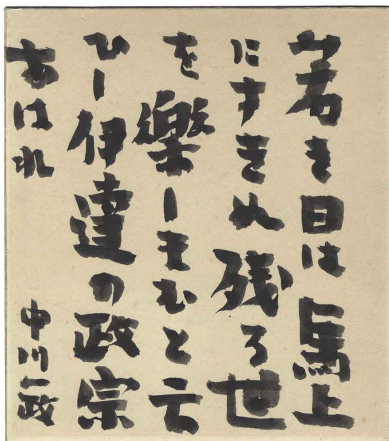 若き日は馬上
にすきぬ残る世
を楽しまむと云
ひし伊達の政宗
あはれ
中川一政